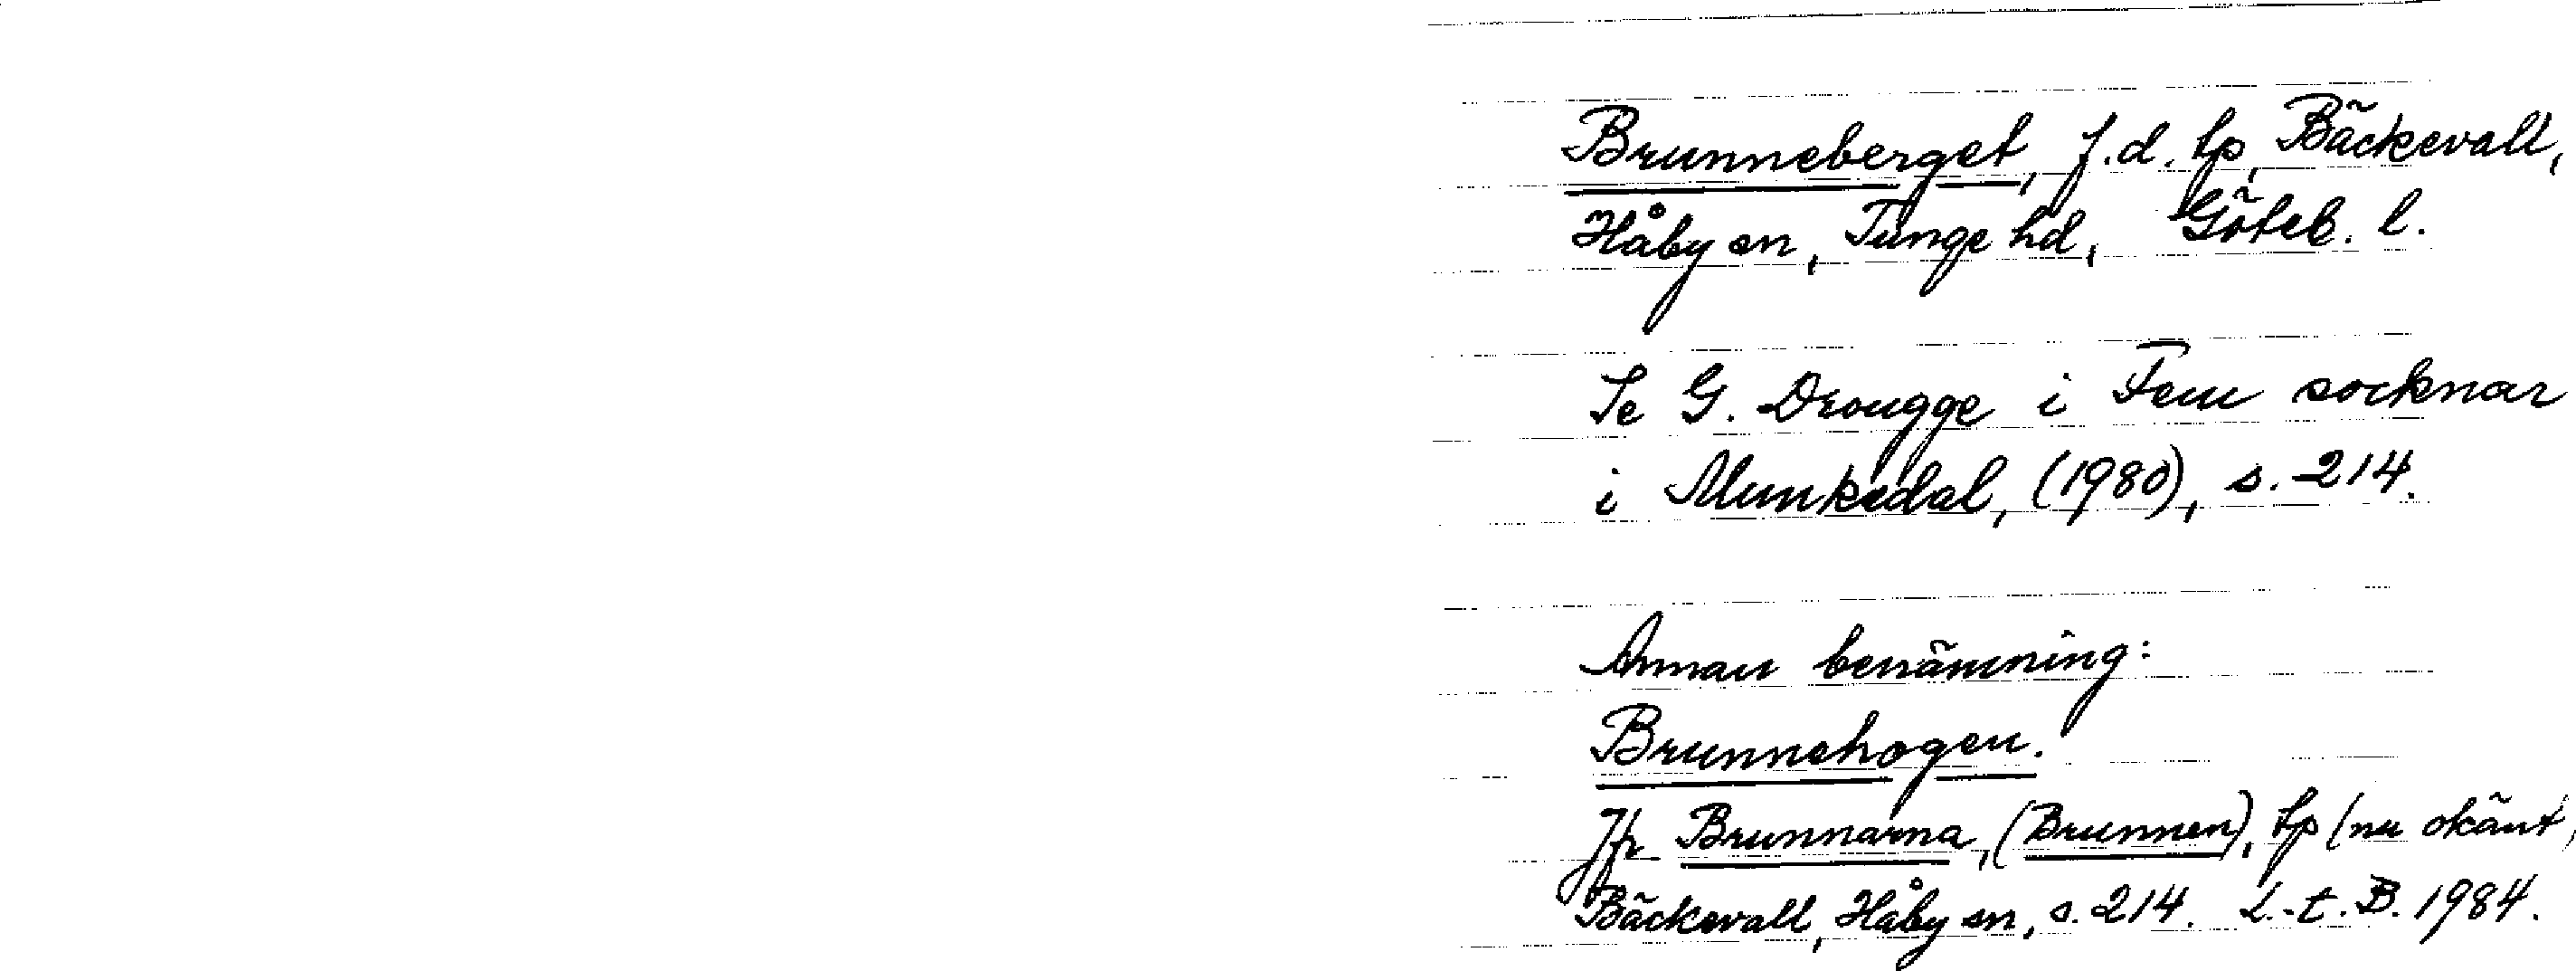 Brunneberget, f.d. tp, Bäckevall,
Håby sn, Tunge hd, Göteb. l.
Se G. Drougge i Fem socknar
i Munkedal, (1980), s. 214.
Annan benämning:
Brunnehogen.
Jfr Brunnarna, (Brunnen), tp (nu okänt,
Bäckevall, Håby sn, s. 214. L.-t. B. 1984.